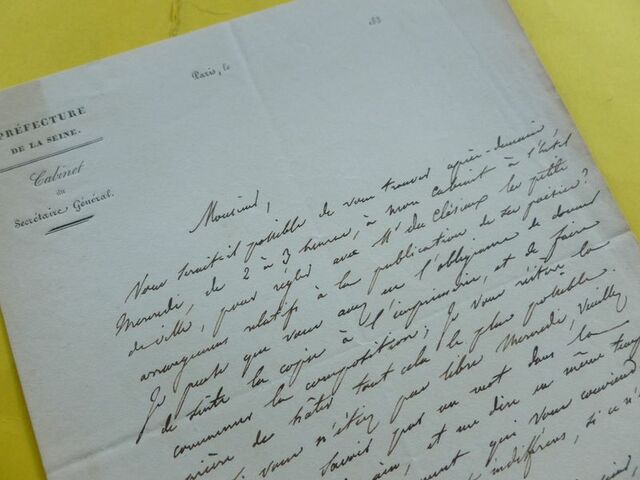 Paris, le 183
PRÉFECTURE
DE LA SEINE.
Cabinet
du
Secrétaire Général.
Monsieur,
Vous serait-il possible de vous trouver après-demain
Mercredi, de 2 à 3 heures, à mon cabinet à l'hôtel
de ville, pour régler avec Mr du Clésieux les petits
arrangemens relatifs à la publication de ses poésies?
Je pense que vous aurez eu l'obligeance de donner
de suite la copie à l'imprimerie, et de faire
commencer la composition; Je vous réitère la
prière de hâter tout cela le plus possible.
Si vous n'étiez pas libre Mercredi, veuillez
savoir par un mot dans la
et me dire en même temps
qui vous conviend
indifférent, si ce n'e